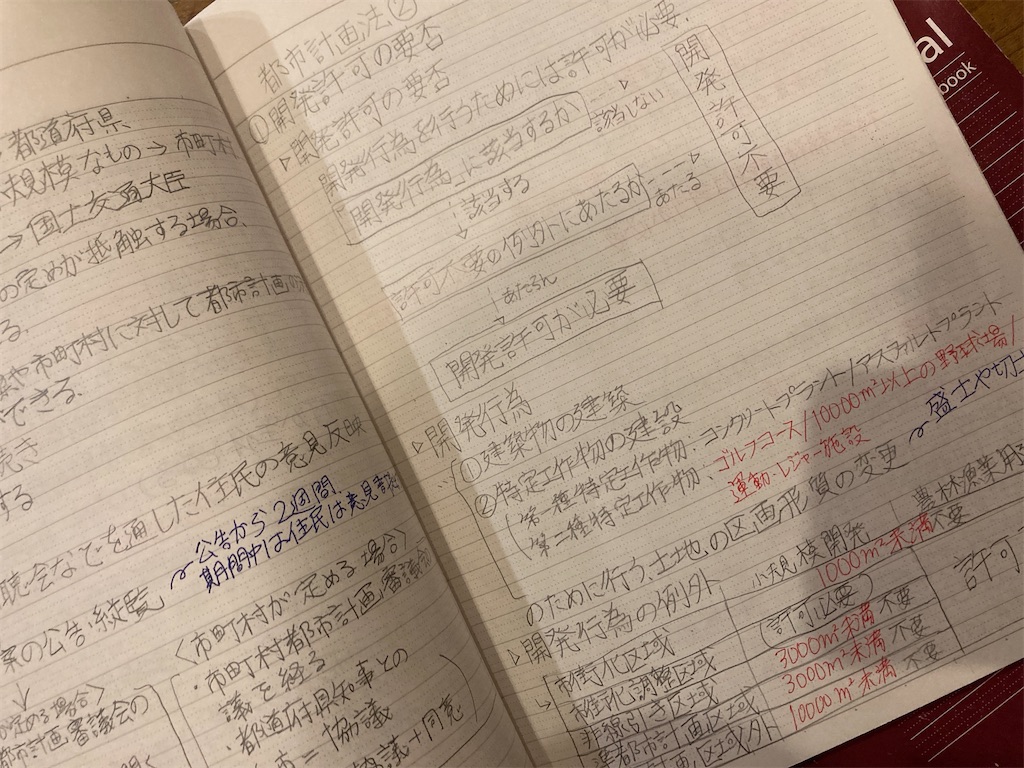 都道府県
規模なもの→市町村
→国土交通大臣
の定めが抵触する場合、
る.
や市町村に対して都市計画
できる.
続き
する
聴会などを通した住民の意見反映
公告から2週間、
期間中は住民は意見
案の公告・縦覧
〈市町村が定める場合〉
・市町村都市計画審議会
議を経る
・都道府県知事との
協議
都市計画審議会の
都市計画法②
開発許可の要否
①開発許可の要否
▷開発行為を行うためには許可が必要.
「開発行為」に該当するか
該当しない
開発許可不要
↓該当する
許可不要の例外にあたるか
あたる
開発許可が必要
▷開発行為
①建築物の建築
②特定工作物の建設
第一種特定工作物:コンクリートプラント/アスファルトプラント
第二種特定工作物:ゴルフコース/10000m²以上の野球場/
運動・レジャー施設
のために行う、土地の区画形質の変更
盛土や切土
▷開発行為の例外
小規模開発
農林漁業用
市街化区域
1000m²未満不要
許可
市街化調整区域
(許可必要)
非線引き区域
3000m²未満 不要
準都市計画区域
3000m²未満 不要
計画区域外
10000m²未満 不要
al
book